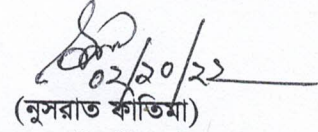 ০২/১০/২২
(নুসরাত ফাতিমা)